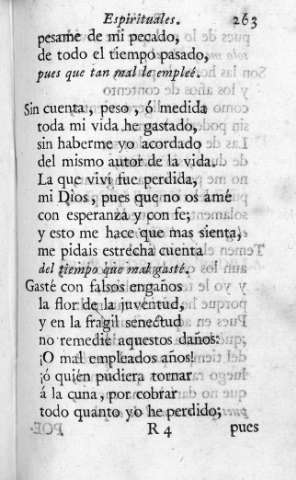 Espirituales. 263
pesame de mi pecado,
de todo el tiempo pasado,
pues que tan mal le empleé.
Sin cuenta, peso, ó medida
toda mi vida he gastado,
sin haberme yo acordado
del mismo autor de la vida.
La que viví fue perdida,
mi Dios, pues que no os amé
con esperanza y con fe;
y esto me hace que mas sienta,
me pidais estrecha cuenta
del tiempo que mal gasté.
Gasté con falsos engaños
la flor de la juventud,
y en la fragil senectud
no remedié aquestos daños:
¡O mal empleados años!
¡ó quién pudiera tornar
á la cuna, por cobrar
todo quanto yo he perdido;
R 4 pues